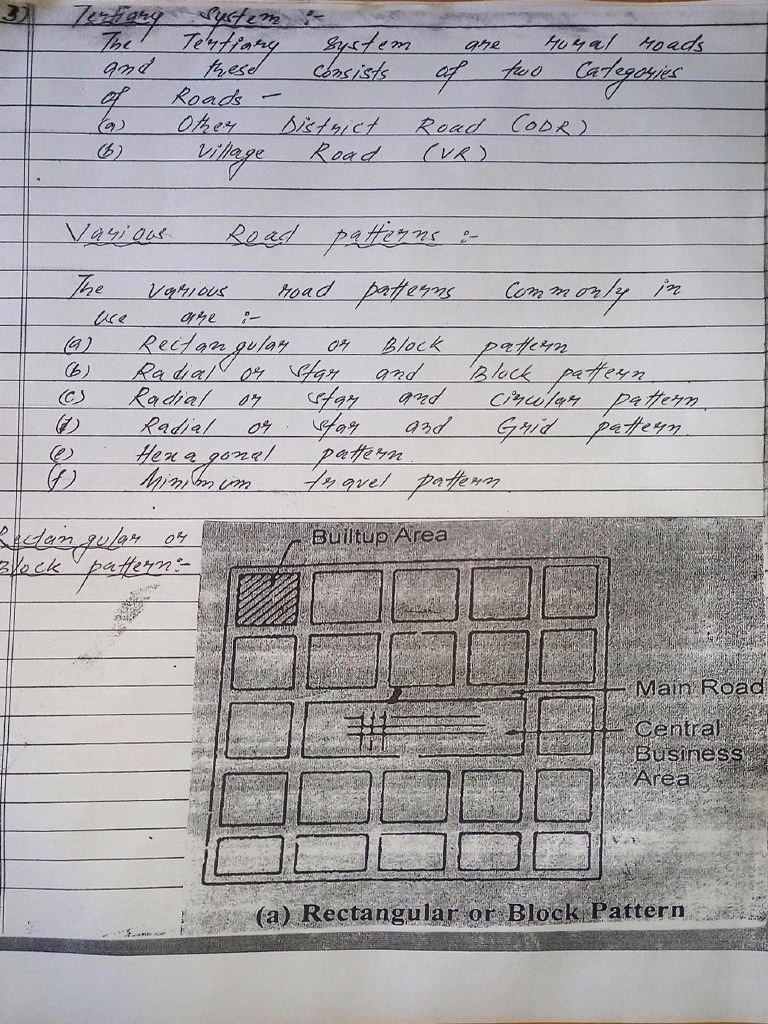 3) Tertiary System :-
The Tertiary System are rural roads
and these consists of two Categories
of Roads -
(a) Other District Road (ODR)
(b) Village Road (VR)
Various Road patterns :-
The various road patterns Commonly in
use are :-
(a) Rectangular or Block pattern
(b) Radial or Star and Block pattern
(c) Radial or Star and Circular pattern
(d) Radial or Star and Grid pattern
(e) Hexagonal pattern
(f) Minimum travel pattern
Rectangular or
Block pattern:-
Builtup Area
Main Road
Central
Business
Area
(a) Rectangular or Block Pattern